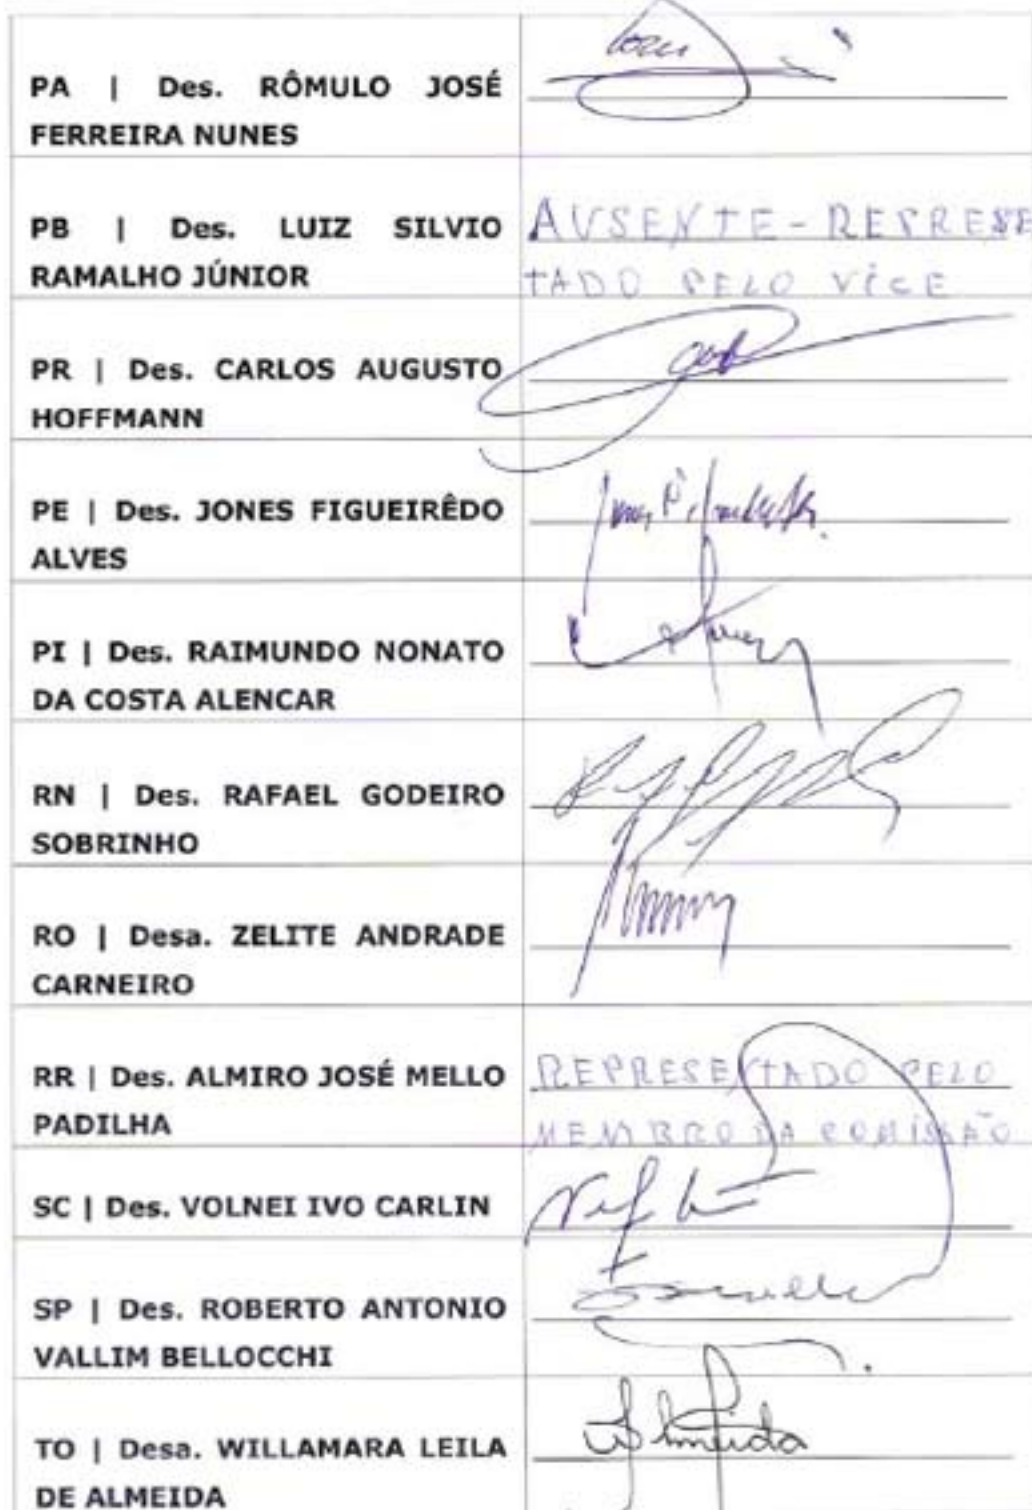 PA | Des. RÔMULO JOSÉ
FERREIRA NUNES
PB | Des. LUIZ SILVIO
RAMALHO JÚNIOR
AUSENTE - REPRESE
TADO PELO VICE
PR | Des. CARLOS AUGUSTO
HOFFMANN
PE | Des. JONES FIGUEIRÊDO
ALVES
PI | Des. RAIMUNDO NONATO
DA COSTA ALENCAR
RN | Des. RAFAEL GODEIRO
SOBRINHO
RO | Desa. ZELITE ANDRADE
CARNEIRO
RR | Des. ALMIRO JOSÉ MELLO
PADILHA
REPRESENTADO PELO
MEMBRO DA COMISSÃO
SC | Des. VOLNEI IVO CARLIN
SP | Des. ROBERTO ANTONIO
VALLIM BELLOCCHI
TO | Desa. WILLAMARA LEILA
DE ALMEIDA
Almeida